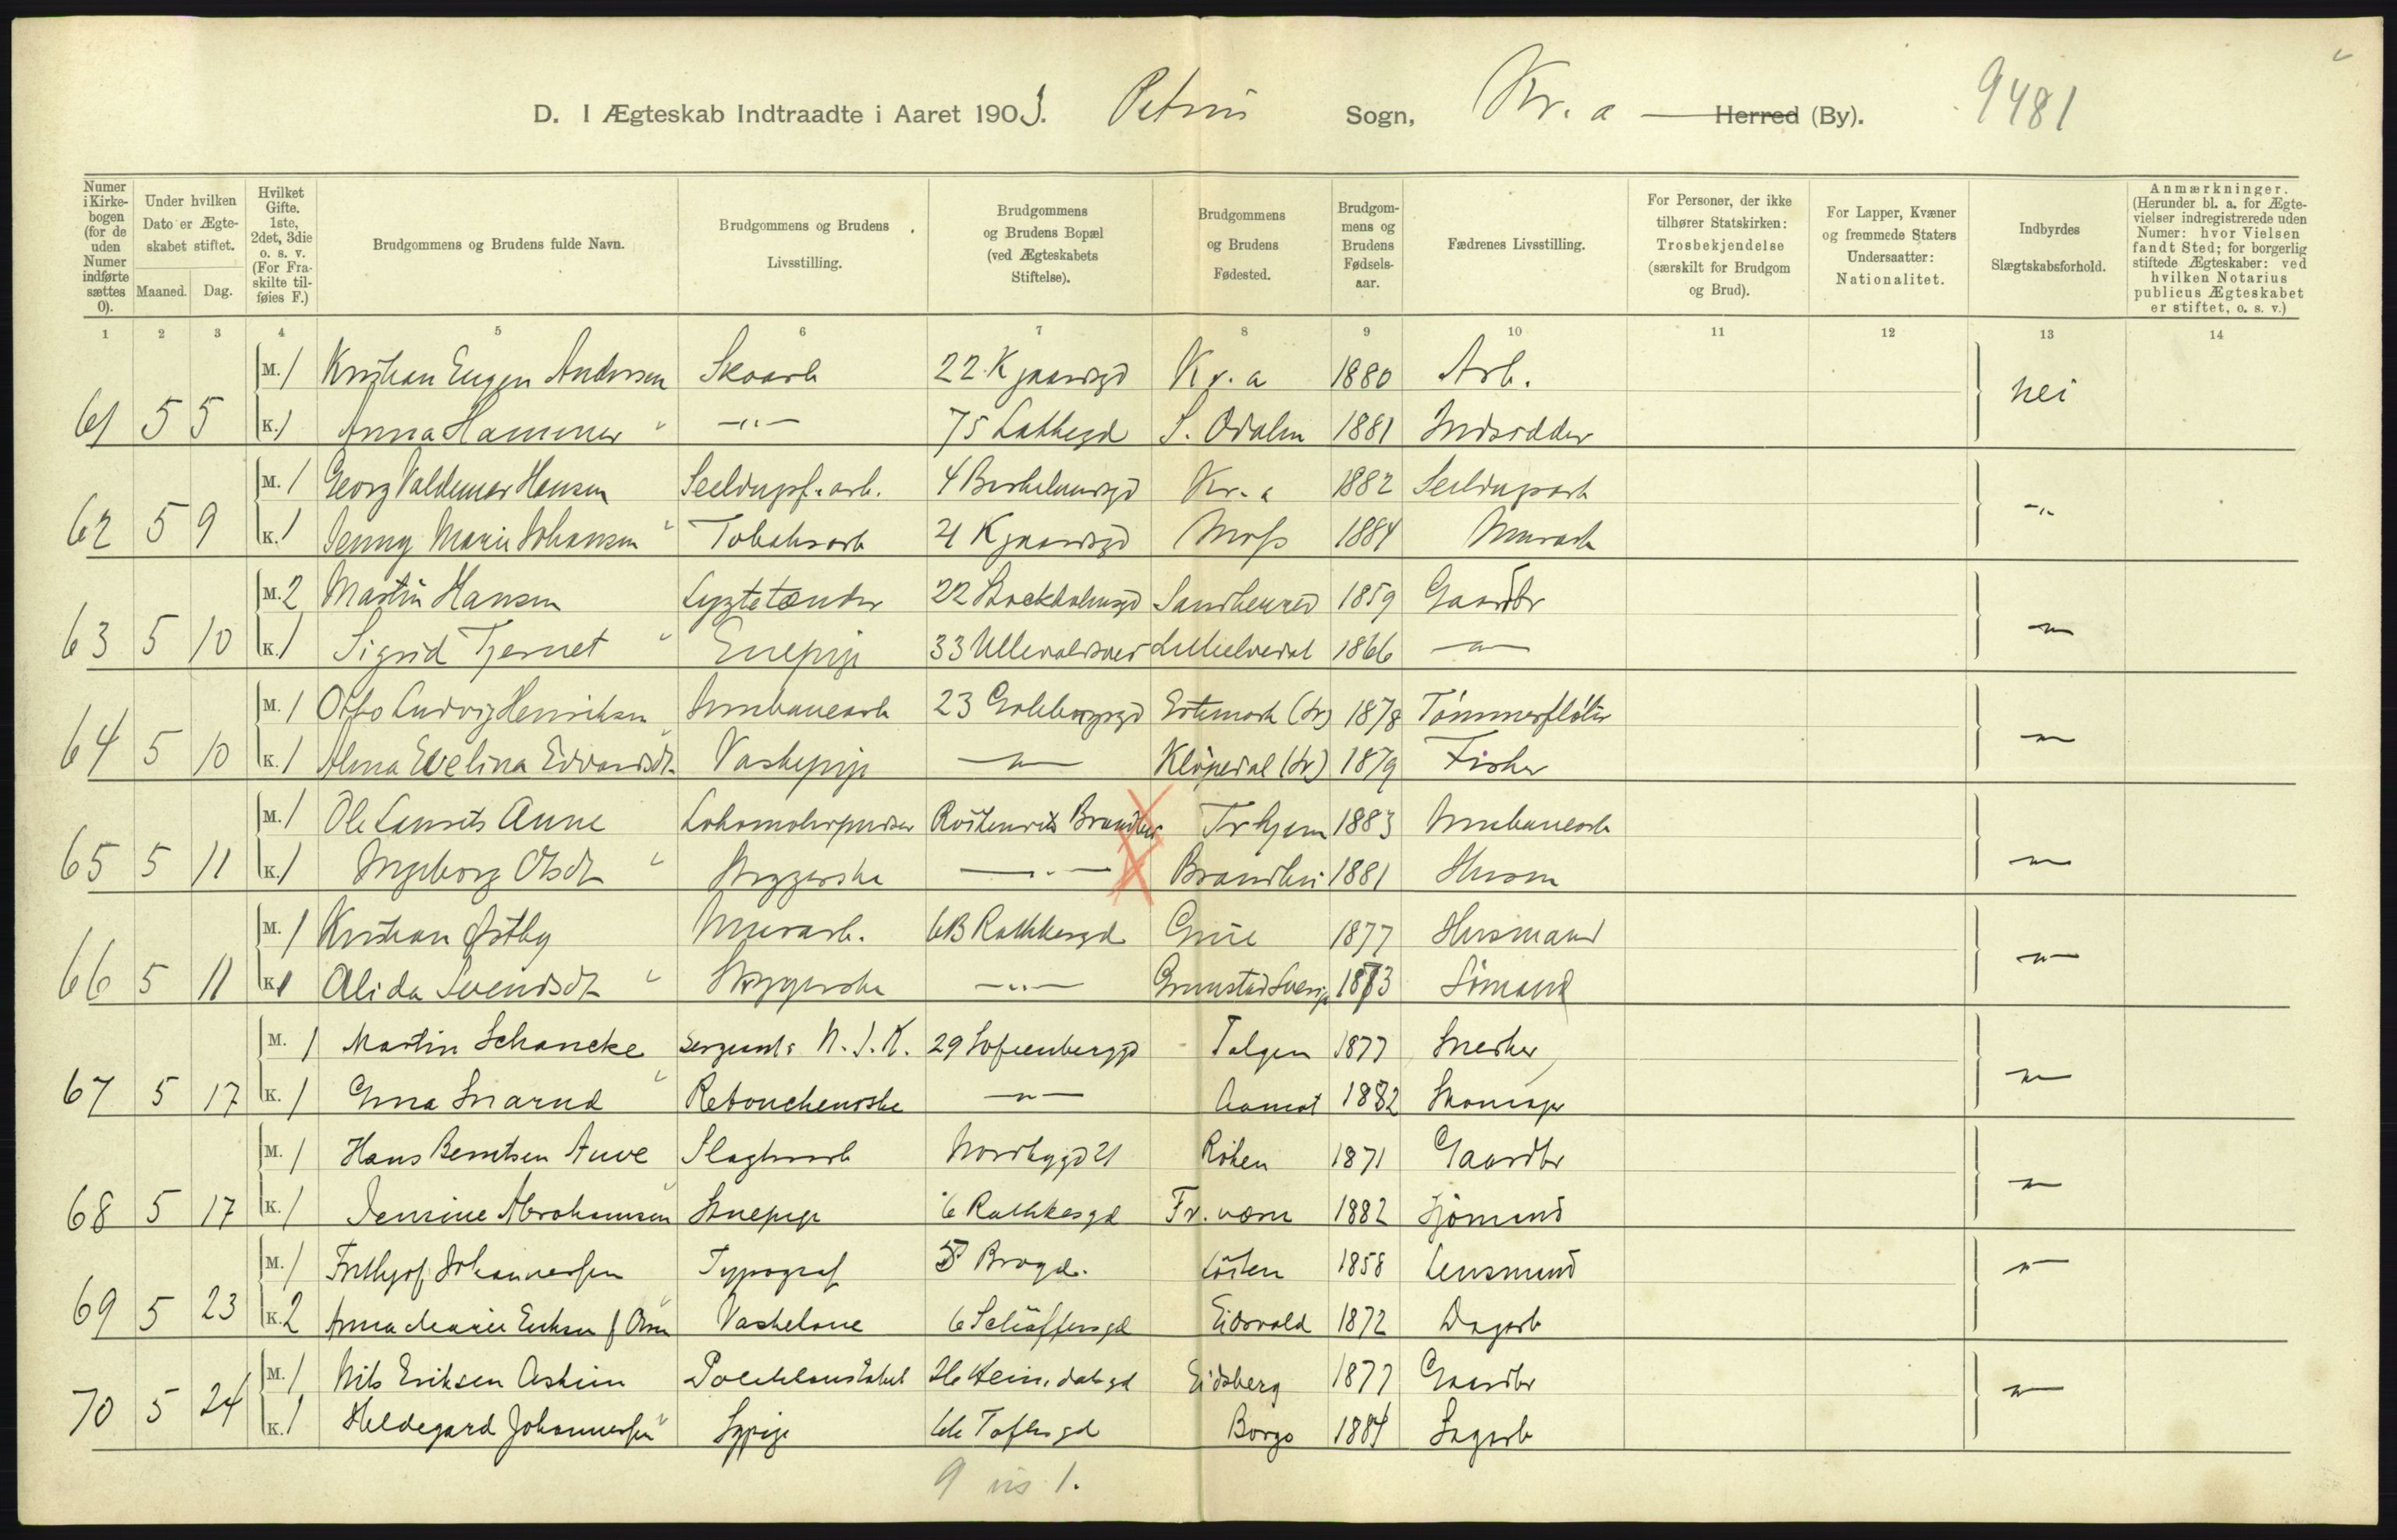 D. I Ægteskab Indtraadte i Aaret 1903. Petrus Sogn, Kr.a — Herred (By). 9481
Numer i Kirkebogen (for de uden Numer indførte sættes 0).
Under hvilken Dato er Ægteskabet stiftet.
Maaned. Dag.
Hvilket Gifte. 1ste, 2det, 3die o. s. v. (For Fraskilte tilføies F.)
Brudgommens og Brudens fulde Navn.
Brudgommens og Brudens Livsstilling.
Brudgommens og Brudens Bopæl (ved Ægteskabets Stiftelse).
Brudgommens og Brudens Fødested.
Brudgommens og Brudens Fødselsaar.
Fædrenes Livsstilling.
For Personer, der ikke tilhører Statskirken: Trosbekjendelse (særskilt for Brudgom og Brud).
For Lapper, Kvæner og fremmede Staters Undersaatter: Nationalitet.
Indbyrdes Slægtskabsforhold.
Anmærkninger. (Herunder bl. a. for Ægtevielser indregistrerede uden Numer: hvor Vielsen fandt Sted; for borgerlig stiftede Ægteskaber: ved hvilken Notarius publicus Ægteskabet er stiftet, o. s. v.)
1 2 3 4 5 6 7 8 9 10 11 12 13 14
M. 1 Kristian Eugen Andersen Skoarb 22 Kr.a 1880 Arb. nei
61 5 5 K. 1 Anna Hammer —"— 75 S. Odalen 1881 Indsidder
M. 1 Georg Valdemar Hansen 4 Kr.a 1882 —"—
62 5 9 K. 1 Jenny Marie Johansen Tobaksarb 21 Moss 1884 Murarb
M. 2 Martin Hansen Lygtetænder 22 Stockholmsgd Sandherred 1859 Gaardbr —"—
63 5 10 K. 1 Sigrid Tjernet Enepige 33 Ullevoldsvei 1866 —"—
M. 1 Otto Ludvig Henriksen Jernbanearb 23 Gøteborggd (Sv) 1878 Tømmerfløter —"—
64 5 10 K. 1 Alma Evelina Edvardsdt. Vaskepige —"— (Sv) 1879 Fisker
M. 1 Ole Lauvets Aune Lokomotivpudser Brandbu Tr.hjem 1883 Jernbanearb —"—
65 5 11 K. 1 Ingeborg Olsdt Strygerske —"— Brandbu 1881 Husm
M. 1 Kristian Østby Murarb. 6B Rathkesgd Grue 1877 Husmand —"—
66 5 11 K. 1 Alida Svendsdt Strygerske —"— Sverige 1873 Sømand
M. 1 Martin Schancke Sergeant N. J. K. 29 Sofienberggd Tolgen 1877 Snedker —"—
67 5 17 K. 1 Snarud Retoucherske —"— Aamot 1882 Skomager
M. 1 Hans Berntsen Auve Slagterarb Nordbygd 21 Røken 1871 Gaardbr —"—
68 5 17 K. 1 Jensine Abrahamsen 6 Rathkesgd Fr.værn 1882 Sjømand
M. 1 Frithjof Johannessen Typograf Brogd. Løiten 1858 Lensmand —"—
69 5 23 K. 2 Anna Marie Eriksen Vaskekone 6 Schäffersgd Eidsvold 1872 Dagarb
M. 1 Nils Eriksen Askim Politikonstabel 26 Heimdalsgd Eidsberg 1877 Gaardbr —"—
70 5 24 K. 1 Hildegard Johannessen Sypige Toftesgd Borge 1884 Sagarb
9 1.